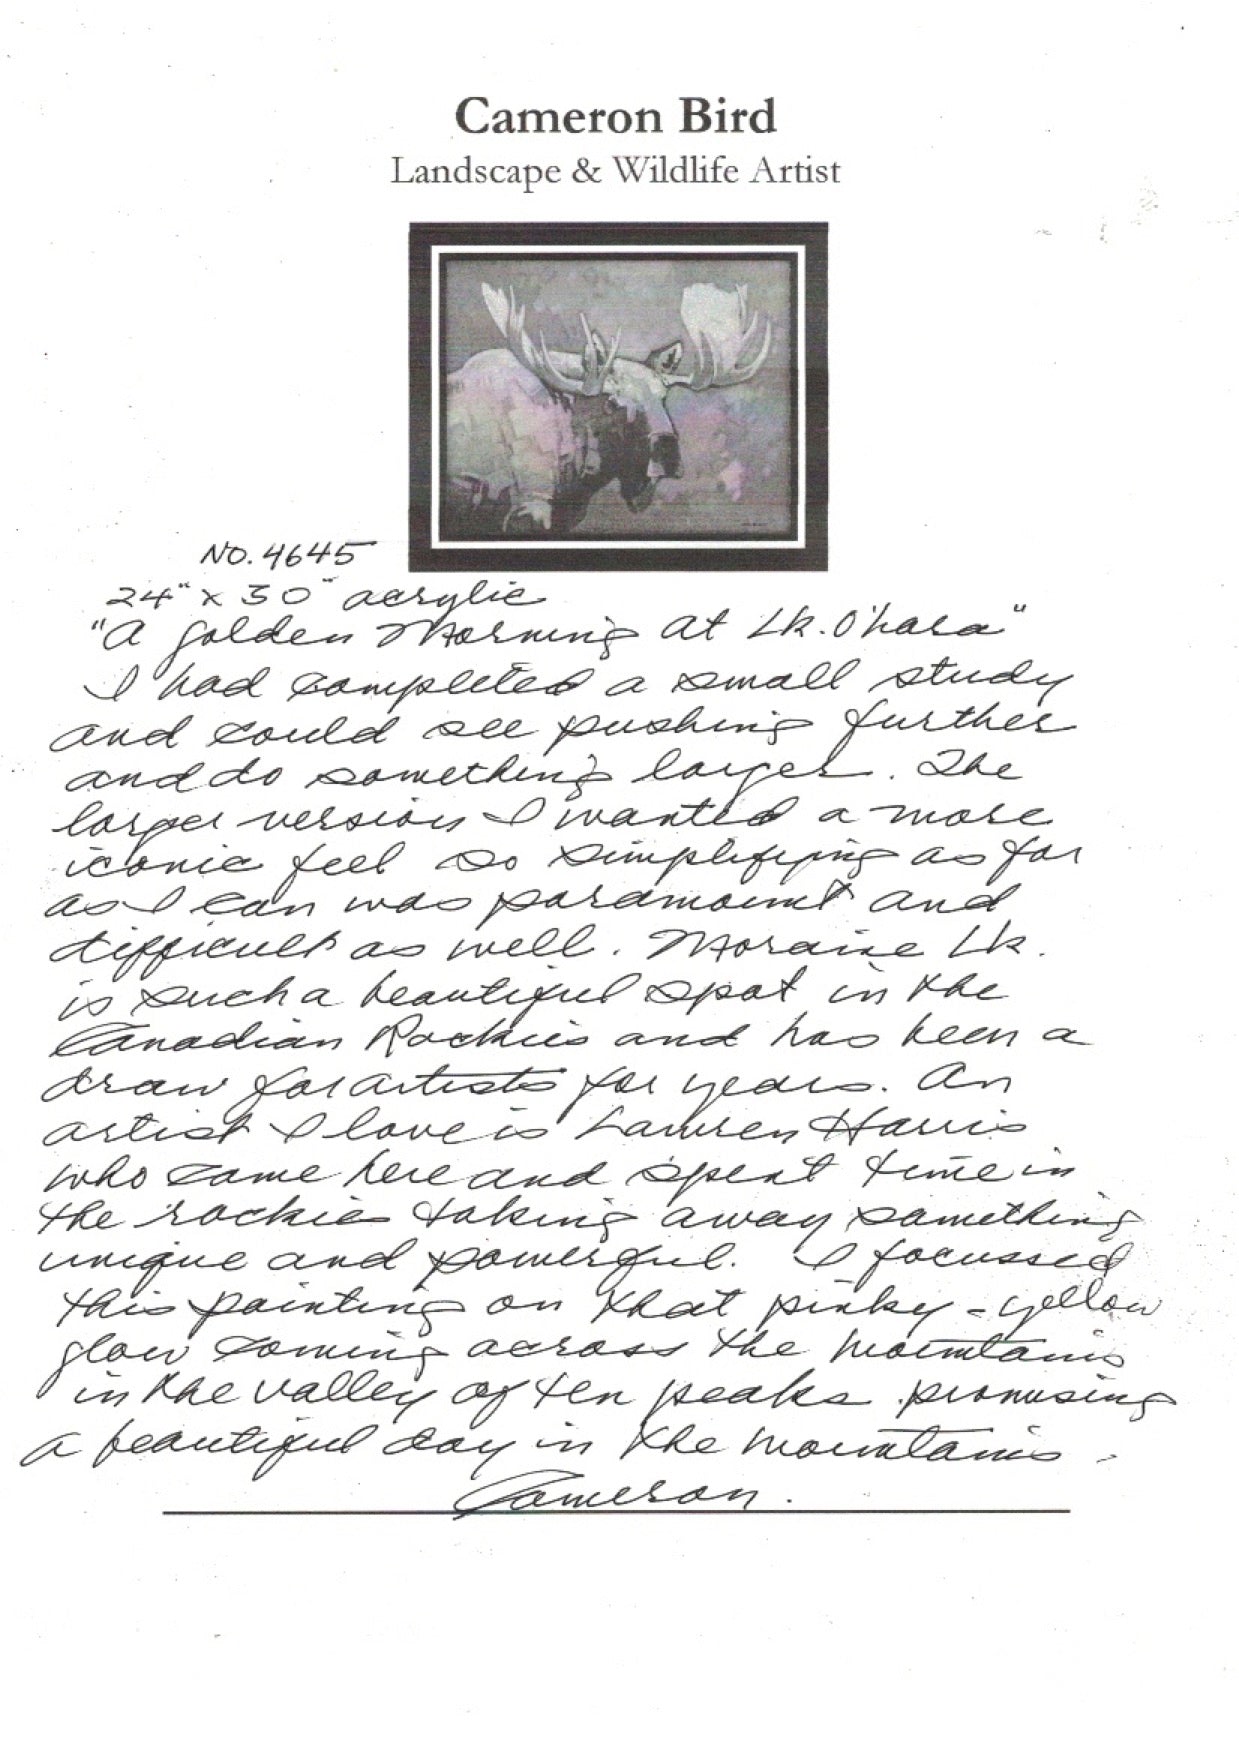 Cameron Bird
Landscape & Wildlife Artist
NO. 4645
24" x 30" acrylic
"A golden Morning at Lk. O'hara"
I had completed a small study
and could see pushing further
and do something larger. The
larger version I wanted a more
iconic feel so simplifying as far
as I can was paramount and
difficult as well. Moraine Lk.
is such a beautiful spot in the
Canadian Rockies and has been a
draw for artists for years. An
artist I love is Lawren Harris
who came here and spent time in
the rockies taking away something
unique and powerful. I focussed
this painting on that pinky-yellow
glow coming across the mountains
in the valley of ten peaks promising
a beautiful day in the mountains.
Cameron.